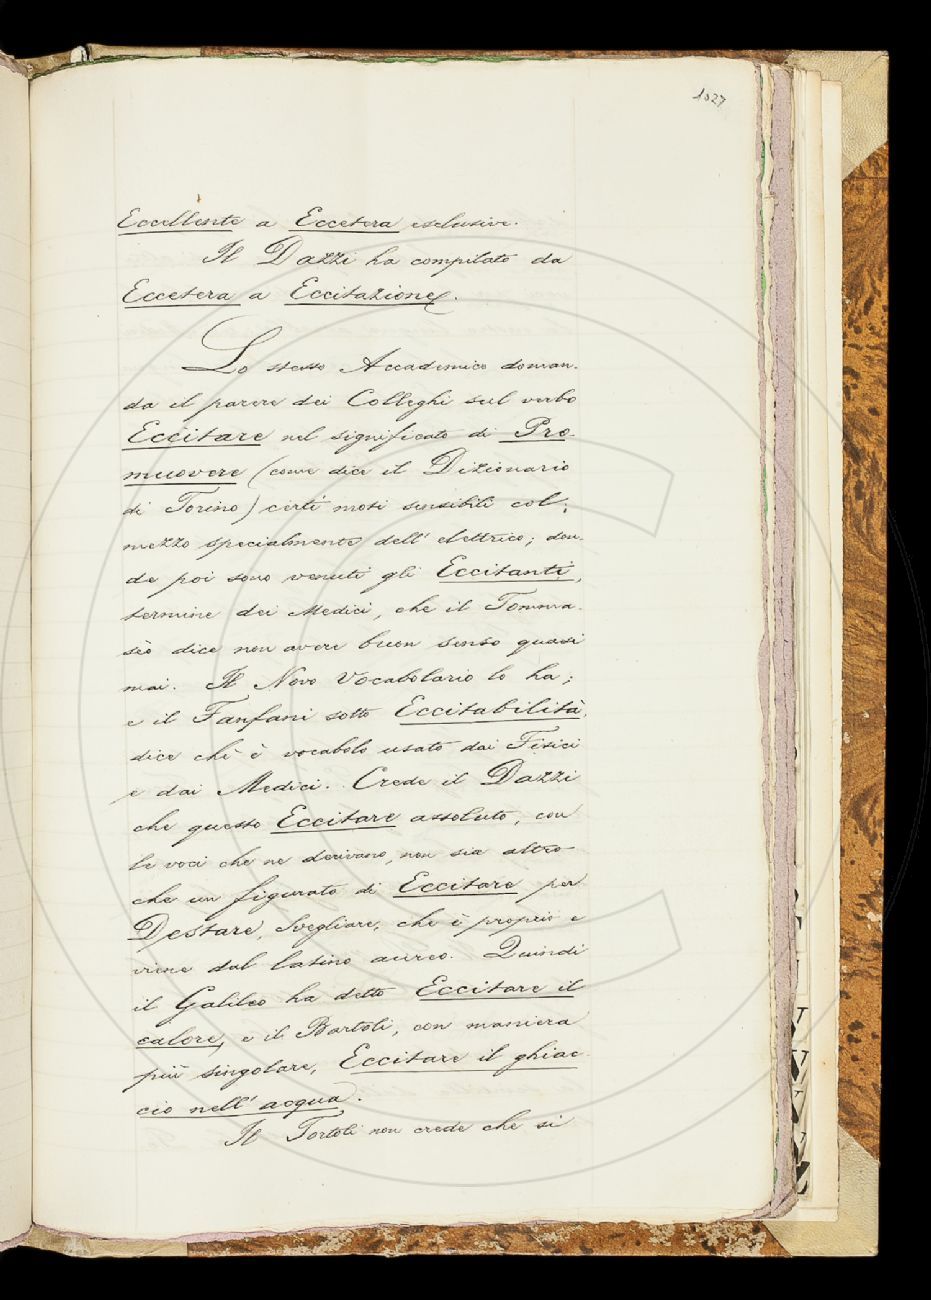 1027
Eccellente a Eccetera esclusive.
Il Dazzi ha compilato da
Eccetera a Eccitazione.
Lo stesso Accademico doman-
da il parere dei Colleghi sul verbo
Eccitare nel significato di Pro-
muovere (come dice il Dizionario
di Torino) certi moti sensibili col
mezzo specialmente dell' elettrico; don-
de poi sono venuti gli Eccitanti,
termine dei Medici, che il Tomma-
sèo dice non avere buon senso quasi
mai. Il Novo Vocabolario lo ha;
e il Fanfani sotto Eccitabilità,
dice ch' è vocabolo usato dai Fisici
e dai Medici. Crede il Dazzi
che questo Eccitare assoluto, con
le voci che ne derivano, non sia altro
che un figurato di Eccitare per
Destare, Svegliare, che è proprio e
viene dal latino aureo. Quindi
il Galileo ha detto Eccitare il
calore, e il Bartoli, con maniera
più singolare, Eccitare il ghiac-
cio nell' acqua.
Il Tortoli non crede che si